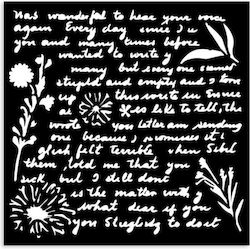 was wonderful to hear your voice
again Every day since I
you and many times before
wanted to write
many but every one seemed
stupid and empty and I tore
up this note in Ensure
as to like to tell, the
wrote you letter am sending
one because, promises it's
glish felt terrible when Sibel
them told me that you
sick but I still dont
is the matter with
what dear if you
you to do it